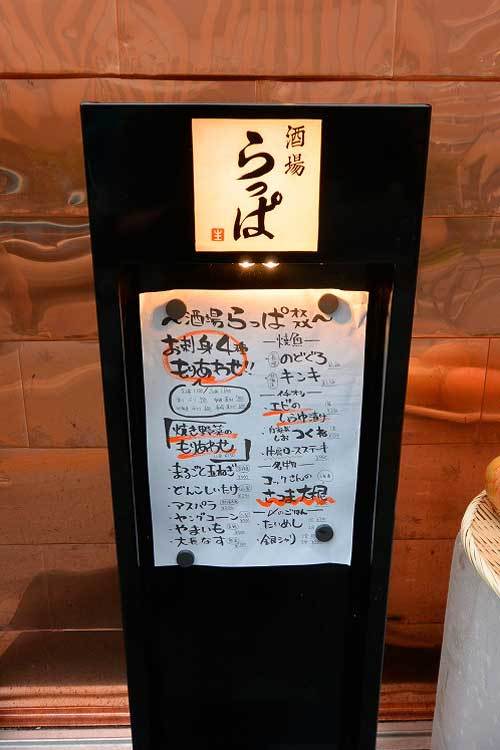 酒場
らっぱ
〜酒場らっぱ 〜
お刺身4種
もりあわせ!!
焼き野菜の
もりあわせ
・まるごと玉ねぎ
・どんこしいたけ
・アスパラ
・ヤングコーン
・やまいも
・大長なす
―焼魚―
のどぐろ
キンキ
―イチオシ―
エビの
しょうゆ漬け
つくね
ロースステーキ
―名物―
コックさんの
さつま大根
〆のごはん
・たいめし
・銀シャリ